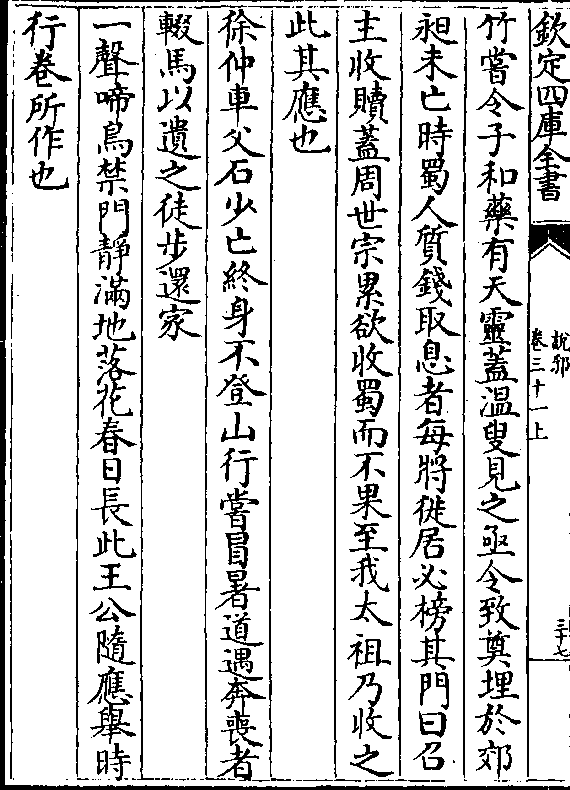 欽定四庫全書
說郛
卷三十一上
三十七
竹嘗令子和藥有天靈蓋溫叟見之亟令致奠埋於郊
昶未亡時蜀人質錢取息者每將徙居必榜其門曰召
主收贖蓋周世宗累欲收蜀而不果至我太祖乃收之
此其應也
徐仲車父石少亡終身不登山行嘗冒暑道遇奔喪者
輟馬以遺之徒步還家
一聲啼鳥禁門靜滿地落花春日長此王公隨應舉時
行卷所作也